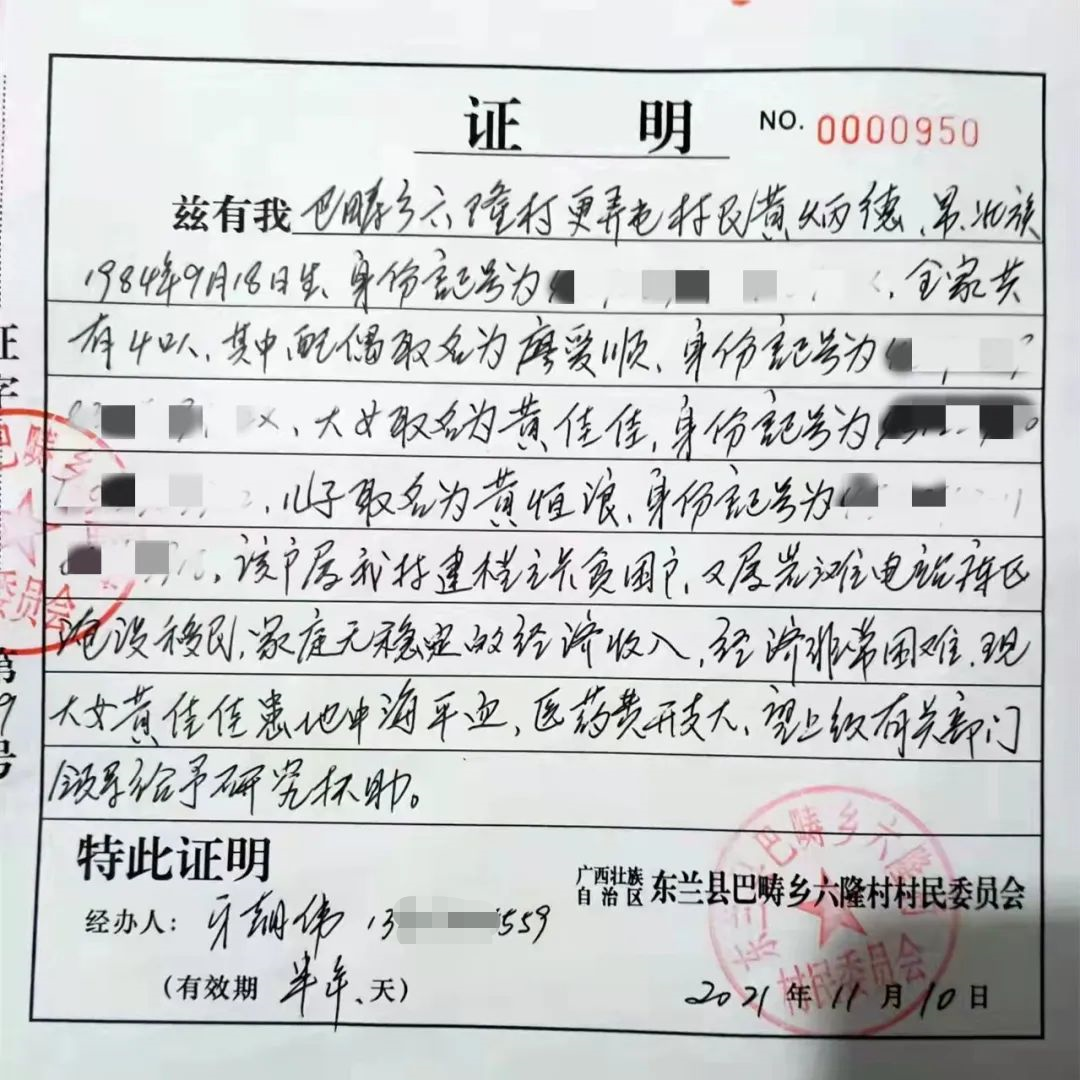 证 明 NO. 0000950
兹有我巴畴乡六隆村更弄屯村民黄炳德、男、壮族
1984年9月18日生、身份记号为 全家共
有4口人、其中、配偶取名为廖爱顺、身份记号为
大女取名为黄佳佳、身份记号为
儿子取名为黄恒浪、身份记号为
该户属我村建档立卡贫困户、又属岩滩电站库区
淹没移民、家庭无稳定的经济收入、经济非常困难、现
大女黄佳佳患地中海平血、医药费开支大、望上级有关部门
领导给予研究扶助。
特此证明
广西壮族自治区 东兰县巴畴乡六隆村村民委员会
经办人：牙朝伟 13 559
（有效期 半年、天）
2021年11月10日
证字
第
9
号
巴畴乡
委员会
东兰县巴畴乡六隆
村民委员会